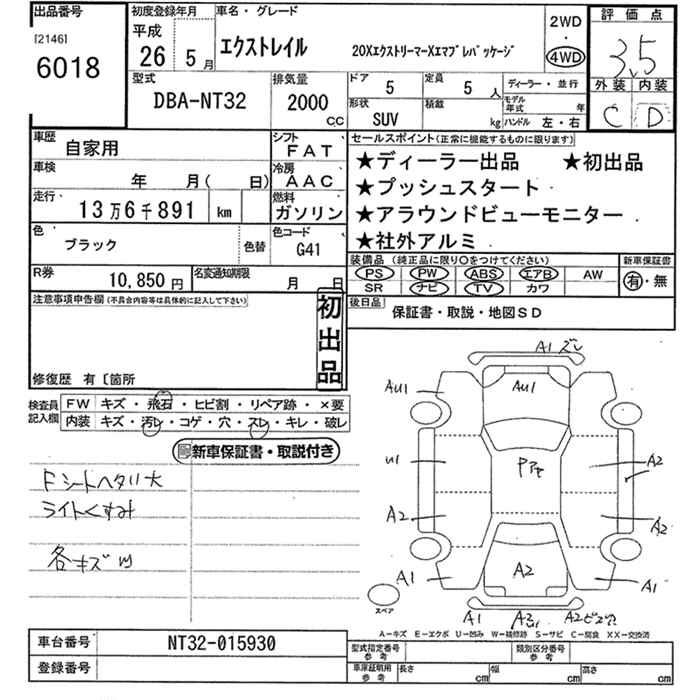 出品番号
[2146]
6018
初度登録年月
平成
26年 5月
車名・グレード
エクストレイル 20XエクストリーマーXエマブレパッケージ
2WD
・
4WD
評価点
3.5
外装 内装
C D
型式
DBA-NT32
排気量
2000
CC
ドア
5
定員
5 人
ディーラー・並行
形状
SUV
積載
kg
モデル年式 年
ハンドル 左・右
車歴
自家用
シフト
FAT
車検
年 月( 日)
冷房
AAC
走行
13万6千891 km
燃料
ガソリン
色
ブラック
色替
色コード
G41
R券
10,850円
名変通知期限
月 日
セールスポイント(正常に機能するものに限ります)
★ディーラー出品 ★初出品
★プッシュスタート
★アラウンドビューモニター
★社外アルミ
装備品 (純正品に限り○をつけてください)
PS PW ABS エアB AW
SR ナビ TV カワ
新車保証書
有・無
後日品
保証書・取説・地図SD
注意事項申告欄(不具合内容等は具体的に記入して下さい)
初出品
修復歴 有〔箇所
検査員記入欄
FW キズ・飛石・ヒビ割・リペア跡・×要
内装 キズ・汚レ・コゲ・穴・スレ・キレ・破レ
新車保証書・取説付き
Fシートヘタリ大
ライトくすみ
各キズU
A1 ズレ
AU1 AU1
U1 A2
A2 A2
A2
A1 A1
スペア
A1
A-キズ E-エクボ U-凹み W-補修跡 S-サビ C-腐食 XX-交換済
車台番号
NT32-015930
登録番号
型式指定番号 参考
類別区分番号 参考
車庫証明用 参考
長さ cm 幅 cm 高さ cm